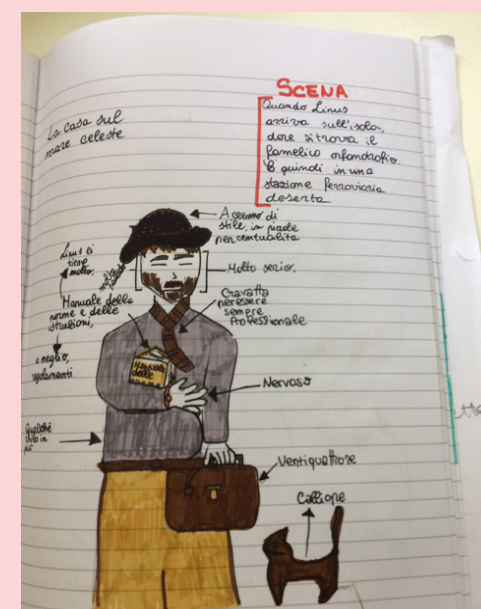 La casa sul
mare celeste
SCENA
Quando Linus
arriva sull'isola,
dove si trova il
famelico orfanotrofio.
È quindi in una
stazione ferroviaria
deserta
Accenno di
stile, in piccole
percentualita
Linus ci
tiene
molto.
Molto serio.
Manuale delle
norme e delle
istruzioni,
Cravatta
per essere
sempre
Professionale
Manuale
delle
o meglio,
regolamenti
Nervoso
Qualche
chilo in
più
Ventiquattrore
Calliope